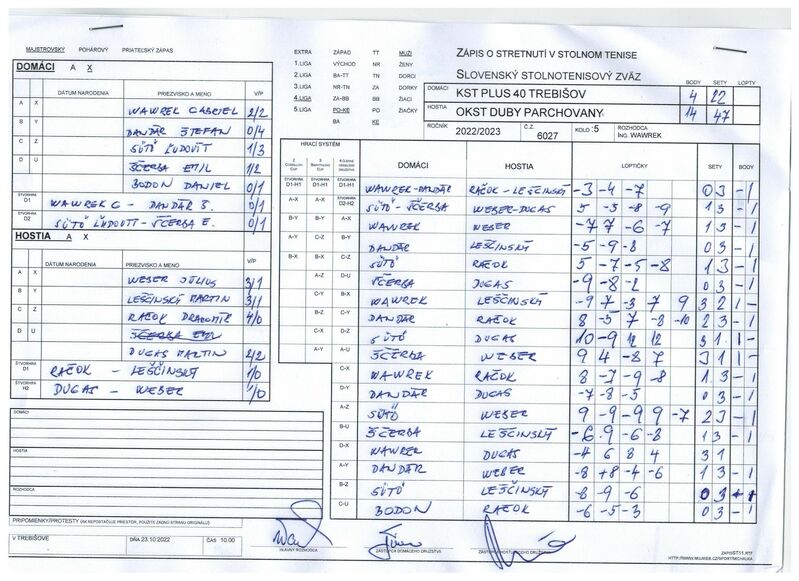 MAJSTROVSKÝ POHÁROVÝ PRIATEĽSKÝ ZÁPAS
DOMÁCI A X
DÁTUM NARODENIA PRIEZVISKO A MENO V/P
A X WAWREK GABRIEL 2/2
B Y DANDÁR ŠTEFAN 0/4
C Z SÜTÖ ĽUDOVÍT 1/3
D U ŠČERBA EMIL 1/2
BODON DANIEL 0/1
ŠTVORHRA D1 WAWREK G - DANDÁR Š. 0/1
ŠTVORHRA D2 SÜTÖ ĽUDOVÍT - ŠČERBA E. 0/1
HOSTIA A X
DÁTUM NARODENIA PRIEZVISKO A MENO V/P
A X WEBER JÚLIUS 3/1
B Y LEŠČINSKÝ MARTIN 3/1
C Z RAČOK DRAGOMÍR 4/0
D U
DUGAS MARTIN 2/2
ŠTVORHRA D1 RAČOK - LEŠČINSKÝ 1/0
ŠTVORHRA H2 DUGAS - WEBER 1/0
DOMÁCI
HOSTIA
ROZHODCA
PRIPOMIENKY/PROTESTY (AK NEPOSTAČUJE PRIESTOR, POUŽITE ZADNÚ STRANU ORIGINÁLU)
V TREBIŠOVE DŇA 23.10.2022 ČAS 10.00
EXTRA ZÁPAD TT MUŽI
1.LIGA VÝCHOD NR ŽENY
2.LIGA BA-TT TN DORCI
3.LIGA NR-TN ZA DORKY
4.LIGA ZA-BB BB ŽIACI
5.LIGA PO-KE PO ŽIAČKY
BA KE
ZÁPIS O STRETNUTÍ V STOLNOM TENISE
SLOVENSKÝ STOLNOTENISOVÝ ZVÄZ
BODY SETY LOPTY
DOMÁCI KST PLUS 40 TREBIŠOV 4 22
HOSTIA OKST DUBY PARCHOVANY 14 47
ROČNÍK 2022/2023 Č.Z. 6027 KOLO :5 ROZHODCA ING. WAWREK
HRACÍ SYSTÉM
DOMÁCI HOSTIA LOPTIČKY SETY BODY
D1-H1 D1-H1 D1-H1 WAWREK-DANDÁR RAČOK - LEŠČINSKÝ -3 -4 -7 0 3 - 1
A-X A-X D2-H2 SÜTÖ - ŠČERBA WEBER-DUGAS 5 -5 -8 -9 1 3 - 1
B-Y B-Y A-X WAWREK WEBER -7 7 -6 -7 1 3 - 1
A-Y C-Z B-Y DANDÁR LEŠČINSKÝ -5 -9 -8 0 3 - 1
B-X B-X C-Z SÜTÖ RAČOK 5 -7 -5 -8 1 3 - 1
A-Z D-U ŠČERBA DUGAS -9 -8 -2 0 3 - 1
C-Y B-X WAWREK LEŠČINSKÝ -9 7 -3 7 9 3 2 1 -
B-Z C-Y DANDÁR RAČOK 8 -5 7 -8 -10 2 3 - 1
C-X D-Z SÜTÖ DUGAS 10 -9 12 12 3 1 1 -
A-Y A-U ŠČERBA WEBER 9 4 -8 7 3 1 1 -
C-X WAWREK RAČOK 8 -7 -9 -8 1 3 - 1
D-Y DANDÁR DUGAS -7 -8 -5 0 3 - 1
A-Z SÜTÖ WEBER 9 -9 -9 9 -7 2 3 - 1
B-U ŠČERBA LEŠČINSKÝ -6 9 -6 -8 1 3 - 1
D-X WAWREK DUGAS -4 6 8 4 3 1
A-Y DANDÁR WEBER -8 +8 -4 -6 1 3 - 1
B-Z SÜTÖ LEŠČINSKÝ -8 -9 -6 0 3
C-U BODON RAČOK -6 -5 -3 0 3 - 1
HLAVNÝ ROZHODCA ZÁSTUPCA DOMÁCEHO DRUŽSTVA ZÁSTUPCA HOSŤUJÚCEHO DRUŽSTVA
ZÁPISST11.RTF